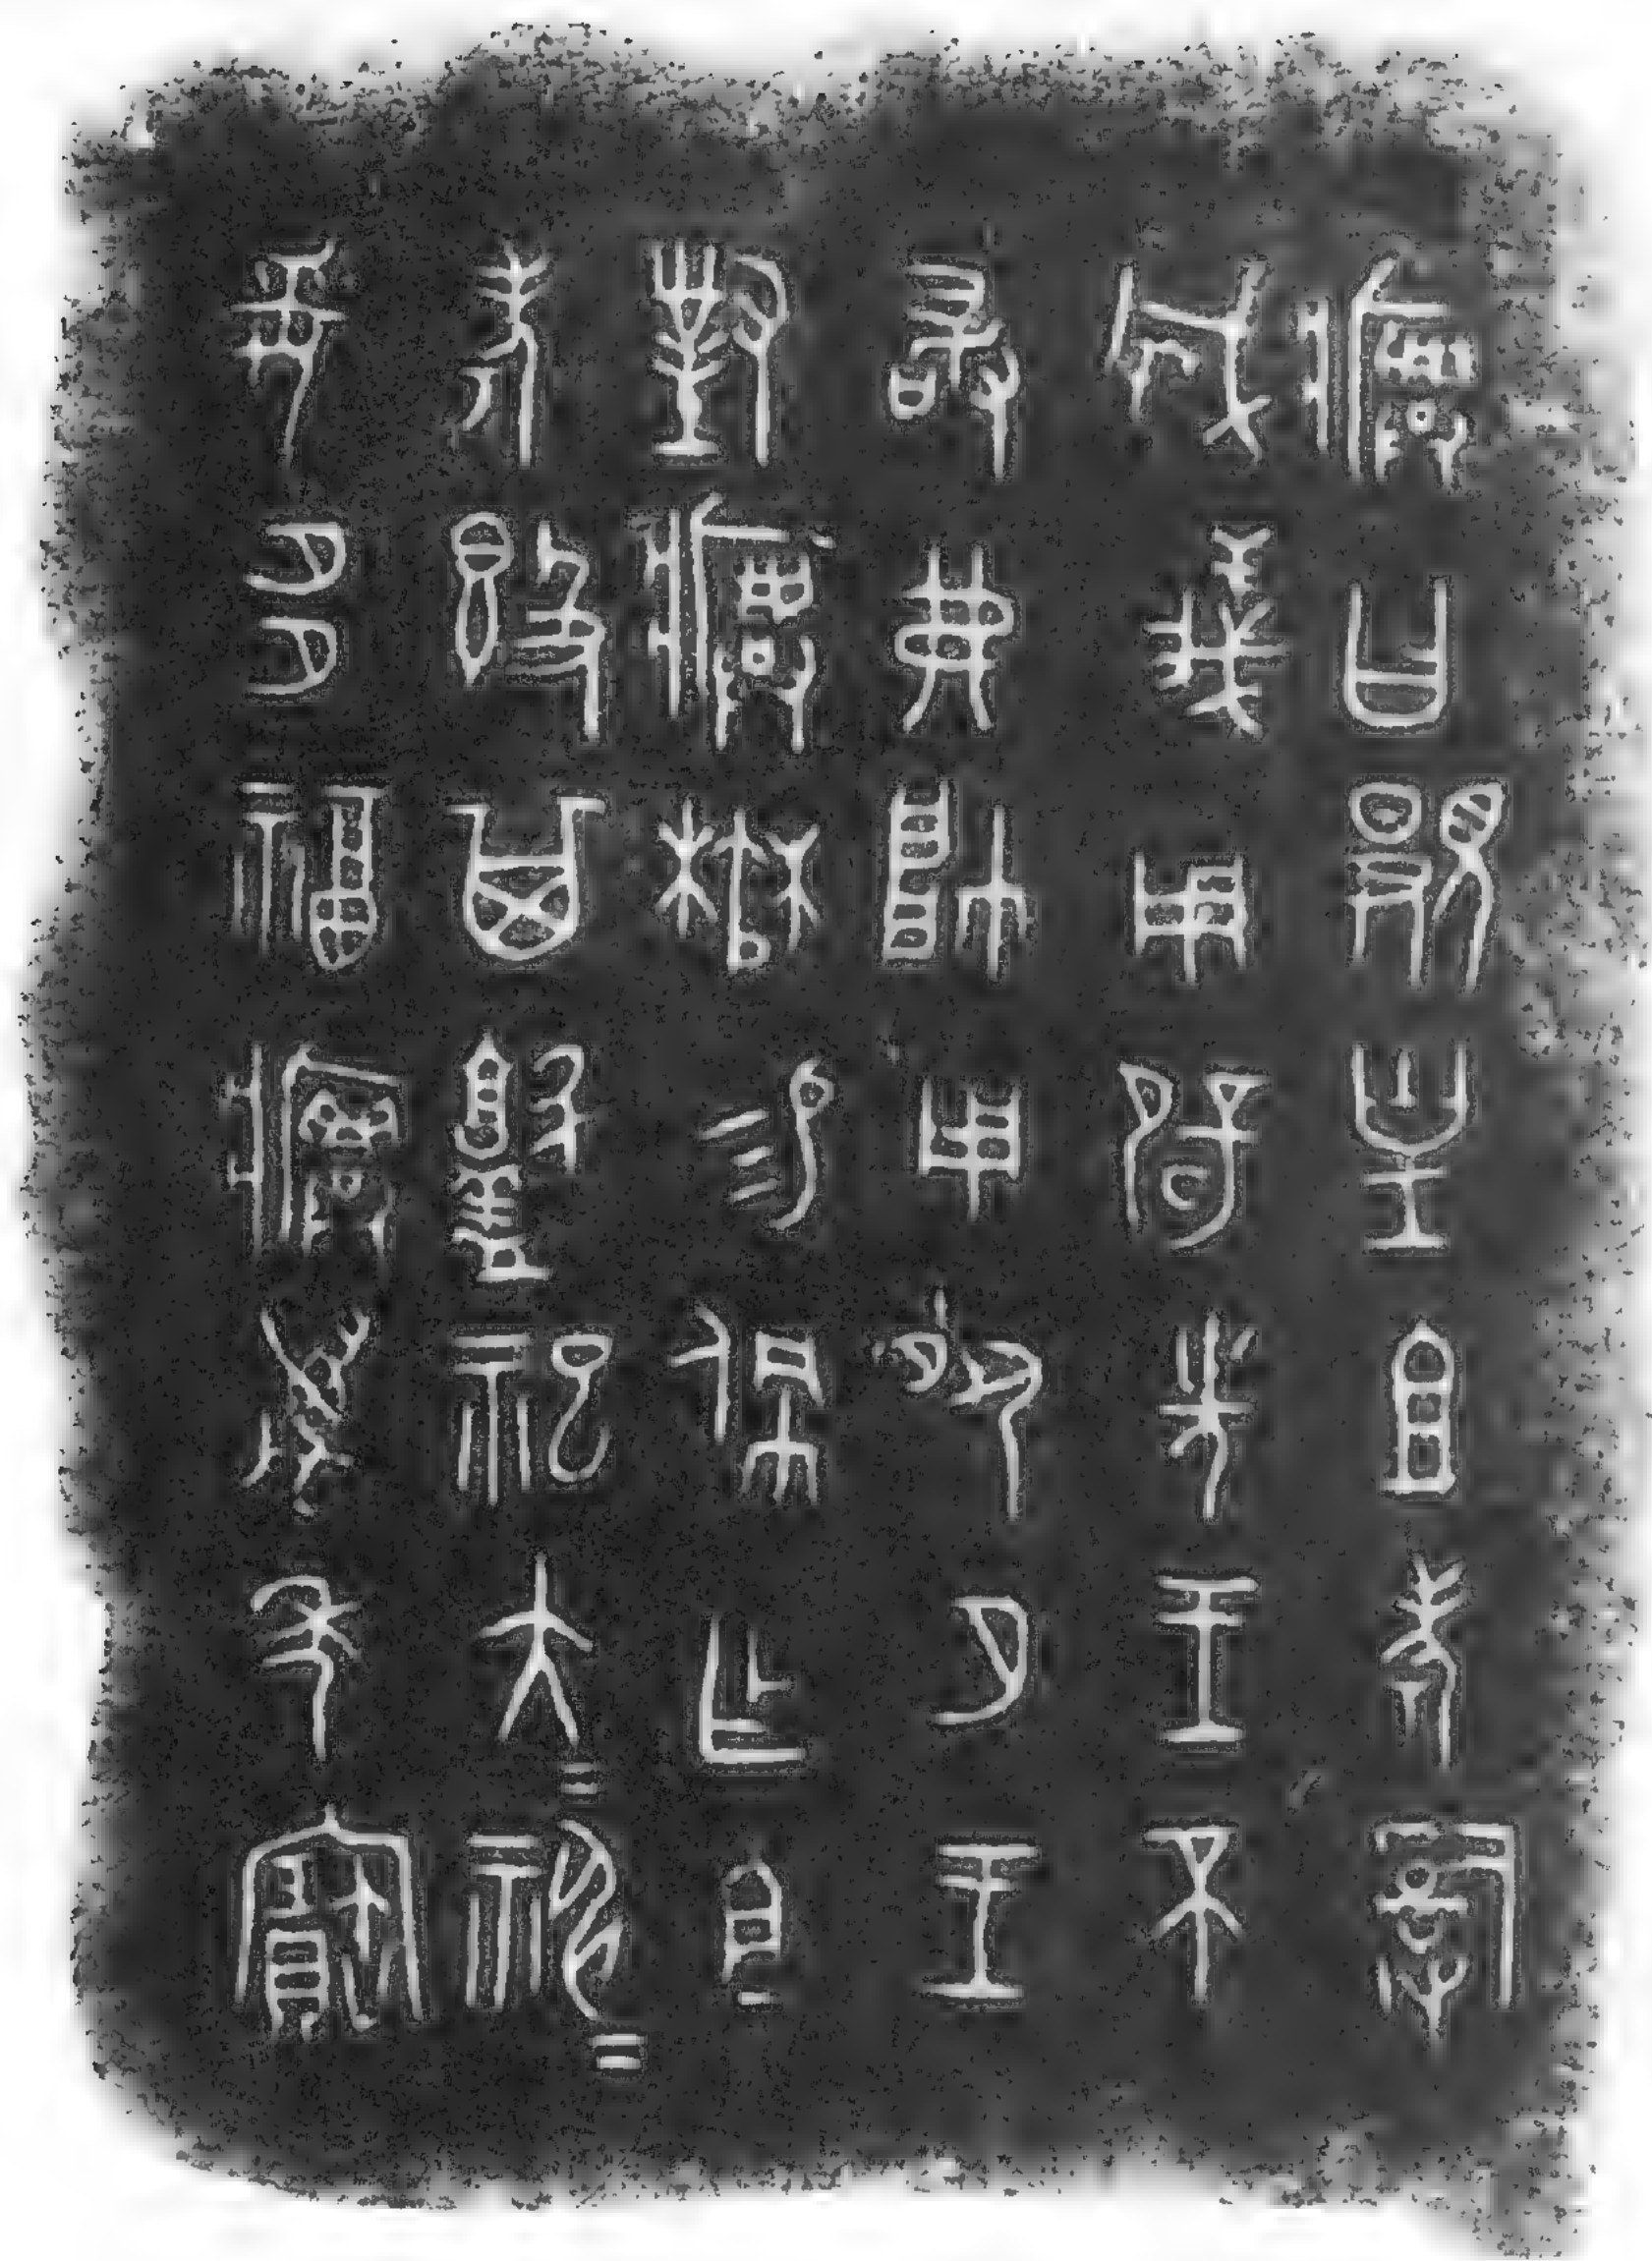 𤼈曰䫉皇且考𤔲
威義用辟先王不
敢弗帥用夙夕王
對𤼈楙易佩乍且
考簋其𦎫祀大=神=
妥多福𤼈萬年寶